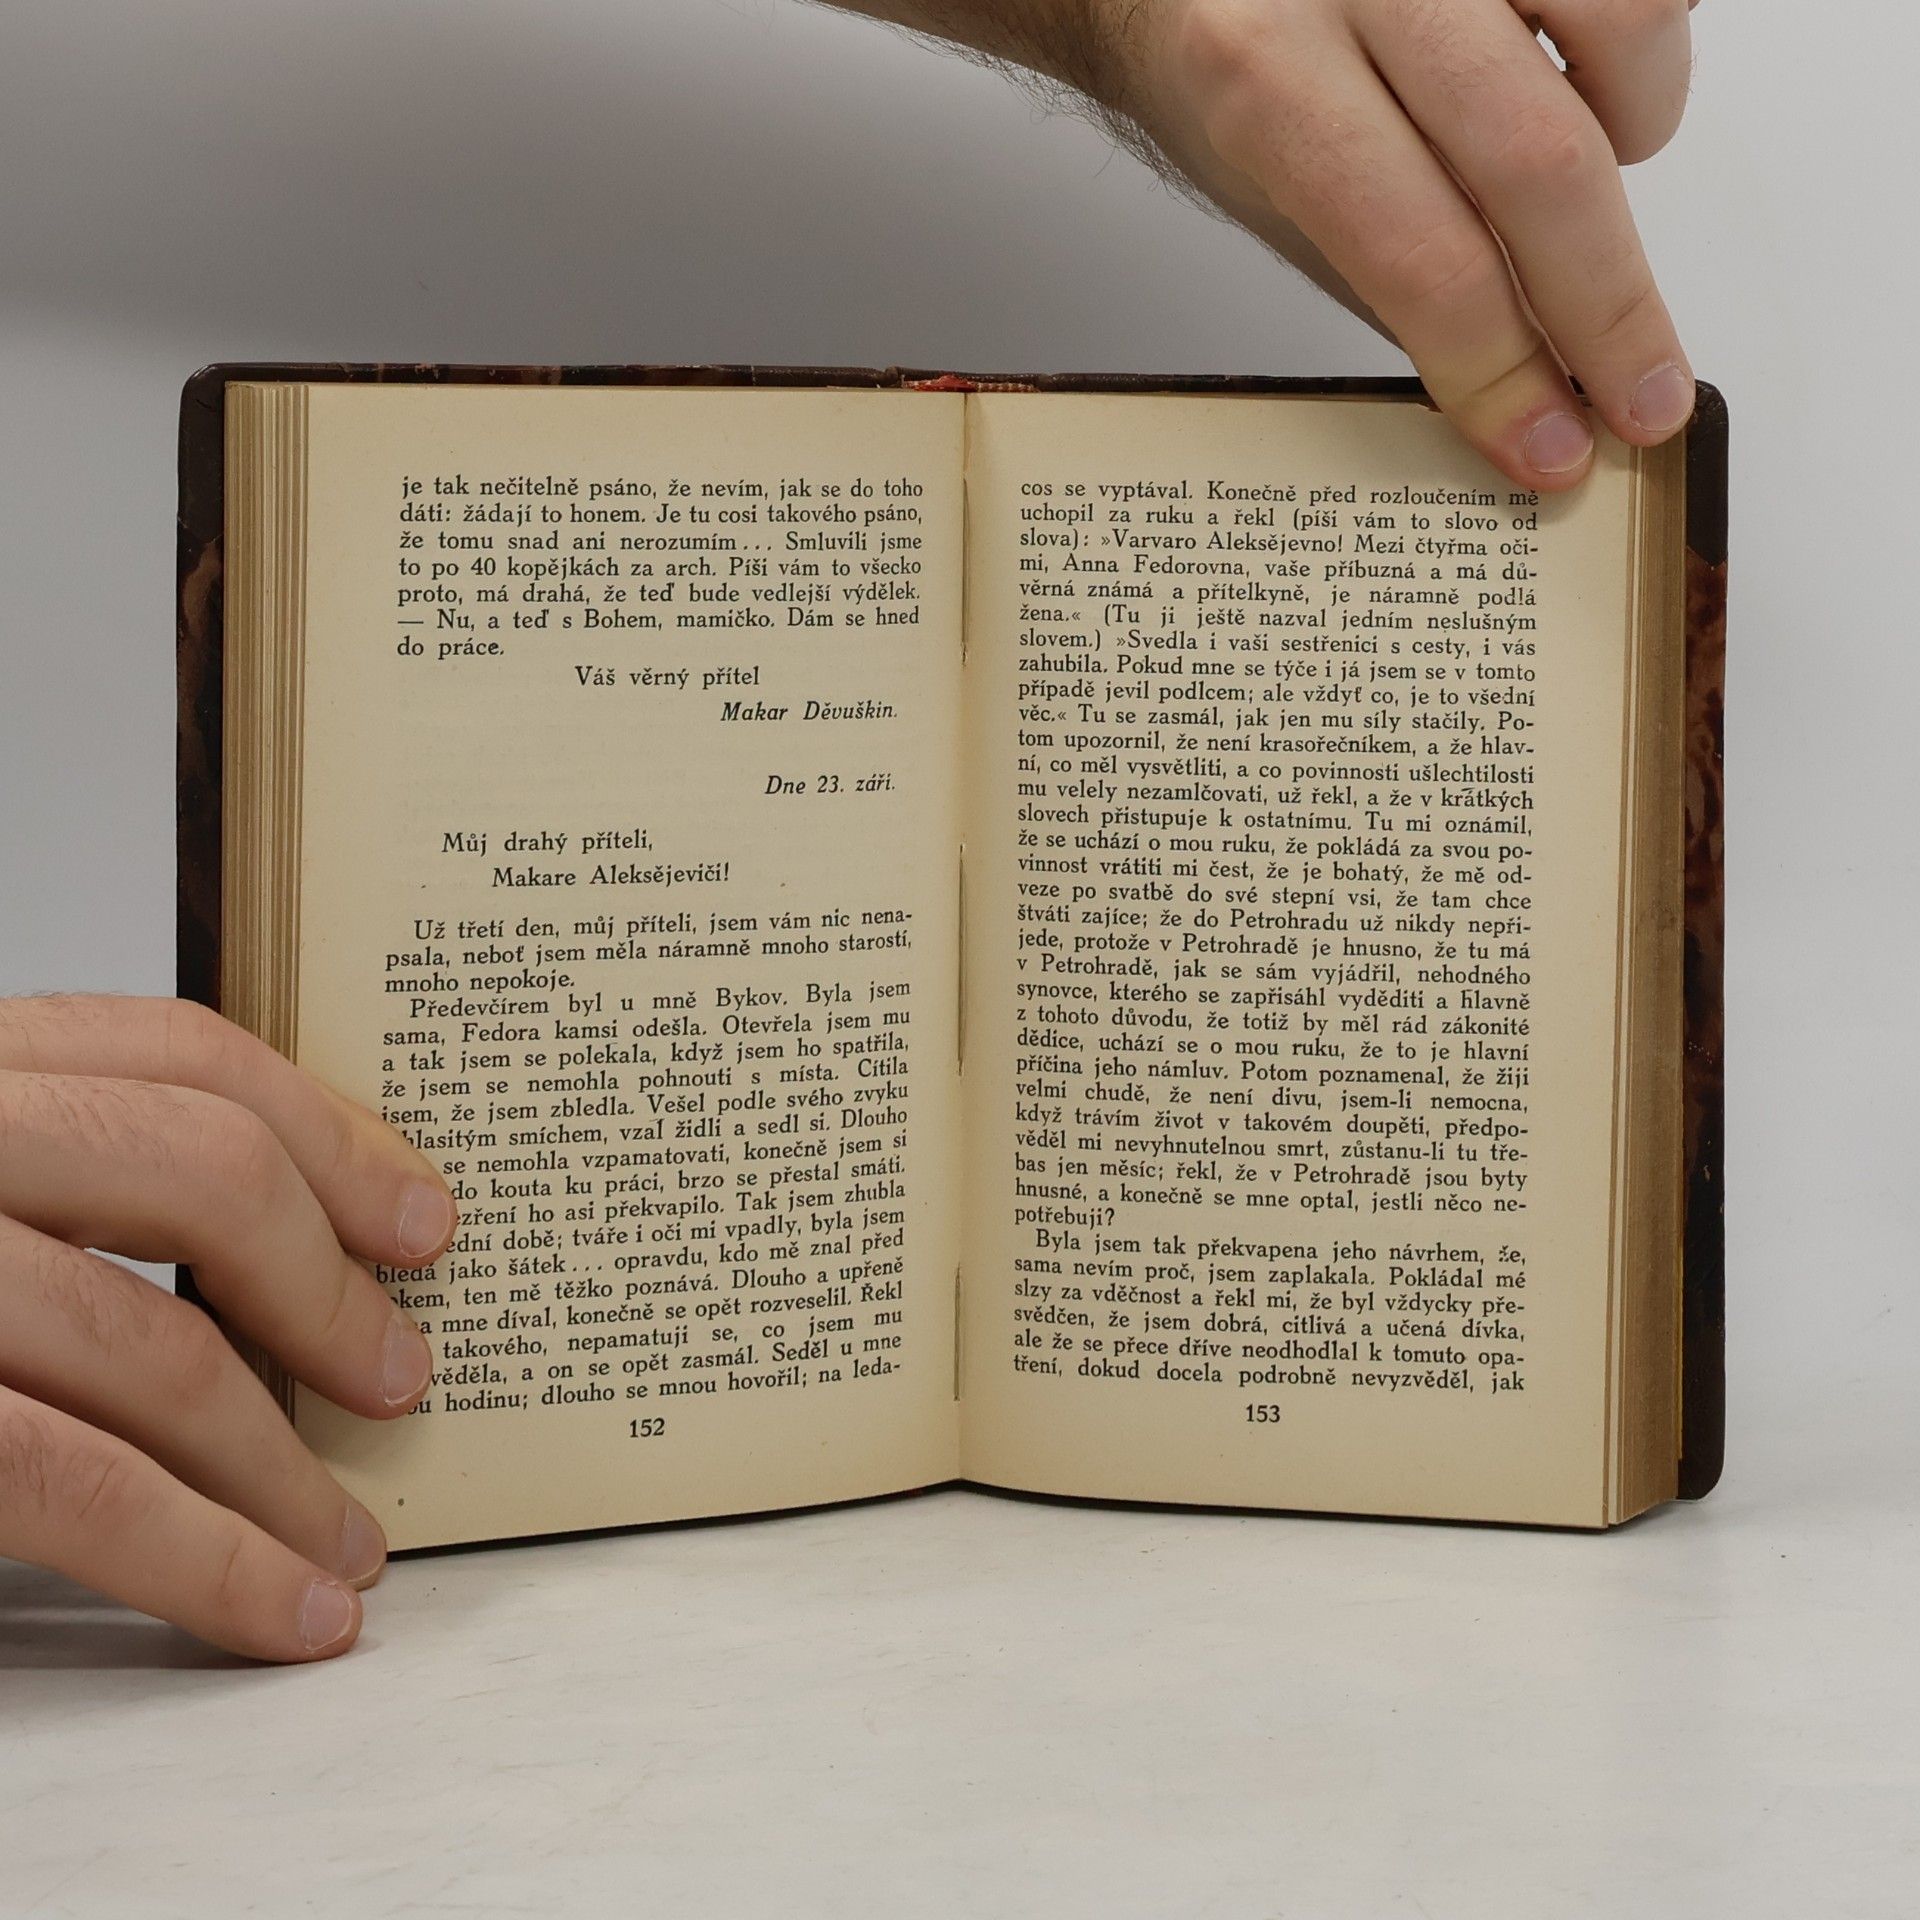 je tak nečitelně psáno, že nevím, jak se do toho
dáti: žádají to honem. Je tu cosi takového psáno,
že tomu snad ani nerozumím... Smluvili jsme
to po 40 kopějkách za arch. Píši vám to všecko
proto, má drahá, že teď bude vedlejší výdělek.
— Nu, a teď s Bohem, mamičko. Dám se hned
do práce.
Váš věrný přítel
Makar Děvuškin.
Dne 23. září.
Můj drahý příteli,
Makare Aleksějeviči!
Už třetí den, můj příteli, jsem vám nic nena-
psala, neboť jsem měla náramně mnoho starostí,
mnoho nepokoje.
Předevčírem byl u mně Bykov. Byla jsem
sama, Fedora kamsi odešla. Otevřela jsem mu
a tak jsem se polekala, když jsem ho spatřila,
že jsem se nemohla pohnouti s místa. Cítila
jsem, že jsem zbledla. Vešel podle svého zvyku
hlasitým smíchem, vzal židli a sedl si. Dlouho
se nemohla vzpamatovati, konečně jsem si
do kouta ku práci, brzo se přestal smáti.
ho asi překvapilo. Tak jsem zhubla
době; tváře i oči mi vpadly, byla jsem
bledá jako šátek... opravdu, kdo mě znal před
ten mě těžko poznává. Dlouho a upřeně
mne díval, konečně se opět rozveselil. Řekl
takového, nepamatuji se, co jsem mu
a on se opět zasmál. Seděl u mne
hodinu; dlouho se mnou hovořil; na leda-
152
cos se vyptával. Konečně před rozloučením mě
uchopil za ruku a řekl (píši vám to slovo od
slova): »Varvaro Aleksějevno! Mezi čtyřma oči-
mi, Anna Fedorovna, vaše příbuzná a má dů-
věrná známá a přítelkyně, je náramně podlá
žena.« (Tu ji ještě nazval jedním neslušným
slovem.) »Svedla i vaši sestřenici s cesty, i vás
zahubila. Pokud mne se týče i já jsem se v tomto
případě jevil podlcem; ale vždyť co, je to všední
věc.« Tu se zasmál, jak jen mu síly stačily. Po-
tom upozornil, že není krasořečníkem, a že hlav-
ní, co měl vysvětliti, a co povinnosti ušlechtilosti
mu velely nezamlčovati, už řekl, a že v krátkých
slovech přistupuje k ostatnímu. Tu mi oznámil,
že se uchází o mou ruku, že pokládá za svou po-
vinnost vrátiti mi čest, že je bohatý, že mě od-
veze po svatbě do své stepní vsi, že tam chce
štváti zajíce; že do Petrohradu už nikdy nepři-
jede, protože v Petrohradě je hnusno, že tu má
v Petrohradě, jak se sám vyjádřil, nehodného
synovce, kterého se zapřisáhl vyděditi a hlavně
z tohoto důvodu, že totiž by měl rád zákonité
dědice, uchází se o mou ruku, že to je hlavní
příčina jeho námluv. Potom poznamenal, že žiji
velmi chudě, že není divu, jsem-li nemocna,
když trávím život v takovém doupěti, předpo-
věděl mi nevyhnutelnou smrt, zůstanu-li tu tře-
bas jen měsíc; řekl, že v Petrohradě jsou byty
hnusné, a konečně se mne optal, jestli něco ne-
potřebuji?
Byla jsem tak překvapena jeho návrhem, že,
sama nevím proč, jsem zaplakala. Pokládal mé
slzy za vděčnost a řekl mi, že byl vždycky pře-
svědčen, že jsem dobrá, citlivá a učená dívka,
ale že se přece dříve neodhodlal k tomuto opa-
tření, dokud docela podrobně nevyzvěděl, jak
153